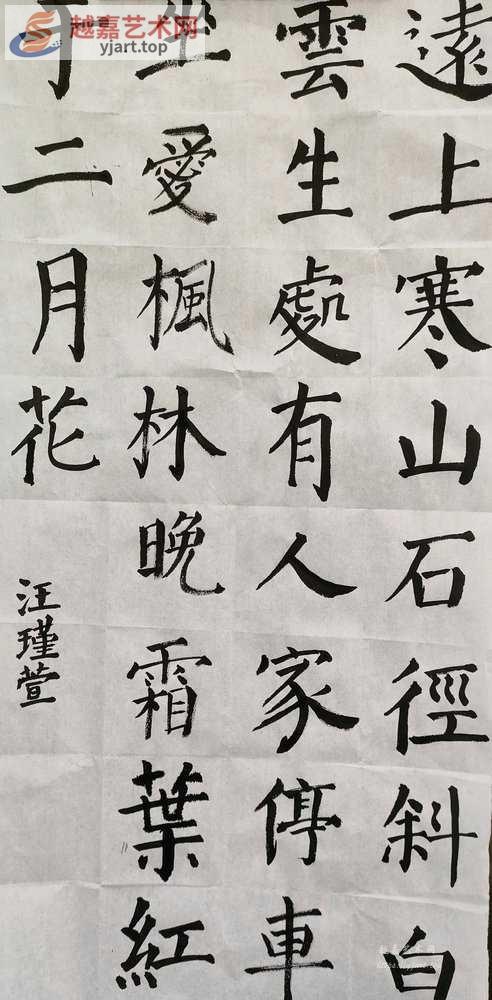 越嘉艺术网
yjart.net
遠上寒山石徑斜白
雲生處有人家停車
坐愛楓林晚霜葉紅
于二月花
汪瑾萱